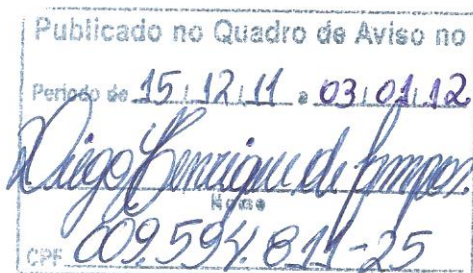 Publicado no Quadro de Aviso no
Período de 15/12/11 a 03/01/12
Diego Henrique de Campos
Nome
CPF 009.594.811-25